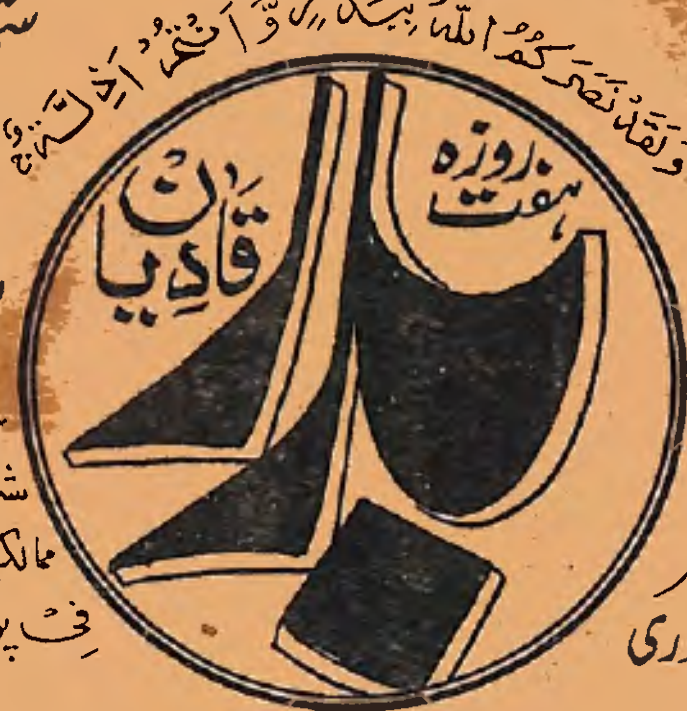 وَلَقَدْ نَصَرَكُمُ اللّٰهُ بِبَدْرٍ وَّاَنْتُمْ اَذِلَّةٌ
ہفت روزہ
بدر
قادیان
ممالک
فی